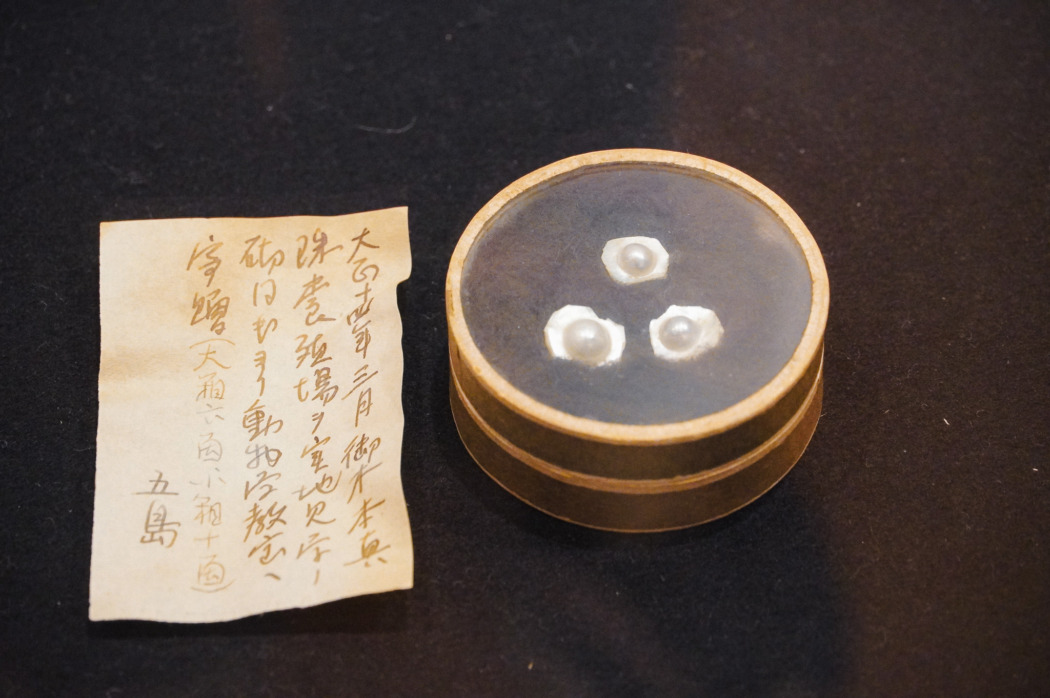 大正十四年三月御木本真
珠養殖場ヲ実地見学ノ
砌同所ヨリ動物学教室ヘ
寄贈(大箱六函小箱十函)
五島